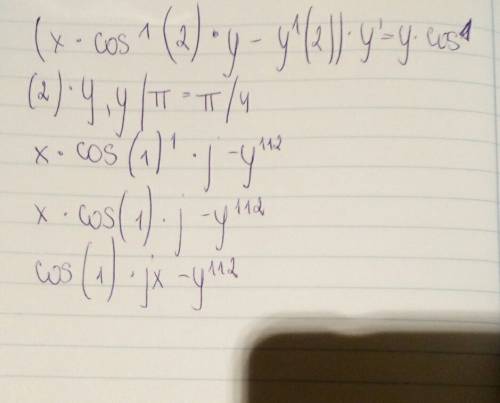 (x · cos¹ (2) · y - y¹(2)) · y' = y · cos¹
(2) · y, y/π = π/4
x · cos(1)¹ · j - y¹¹²
x · cos(1) · j - y¹¹²
cos(1) · jx - y¹¹²